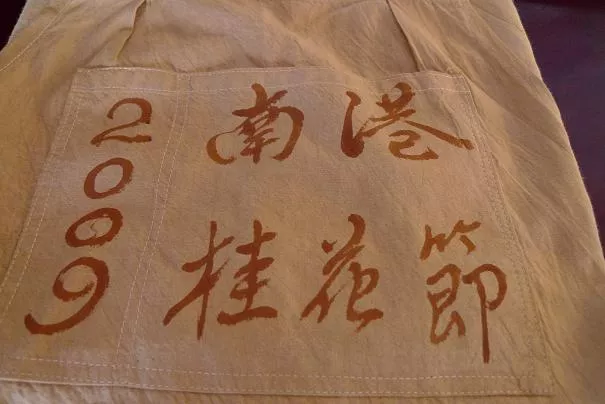 2009
南港
桂花節